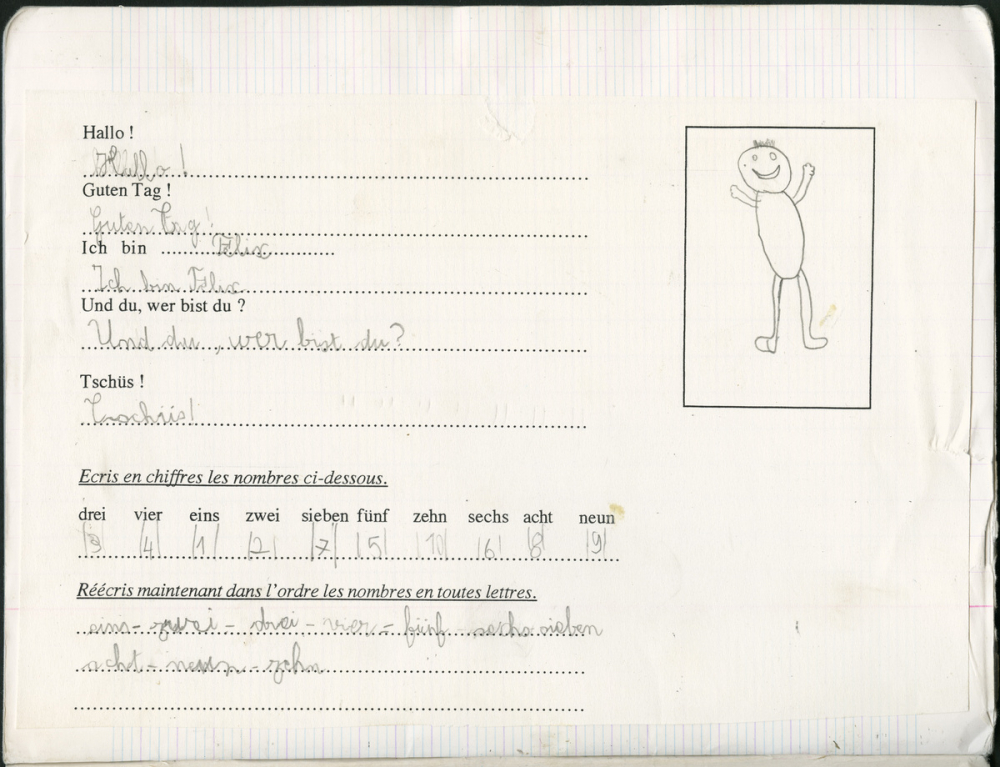 Hallo !
Hallo !
Guten Tag !
Guten Tag !
Ich bin ........ Félix ............
Ich bin Félix
Und du, wer bist du ?
Und du, wer bist du?
Tschüs !
Tschüs!
Ecris en chiffres les nombres ci-dessous.
drei vier eins zwei sieben fünf zehn sechs acht neun
3 4 1 2 7 5 10 6 8 9
Réécris maintenant dans l'ordre les nombres en toutes lettres.
eins - zwei - drei - vier - fünf sechs sieben
acht - neun - zehn